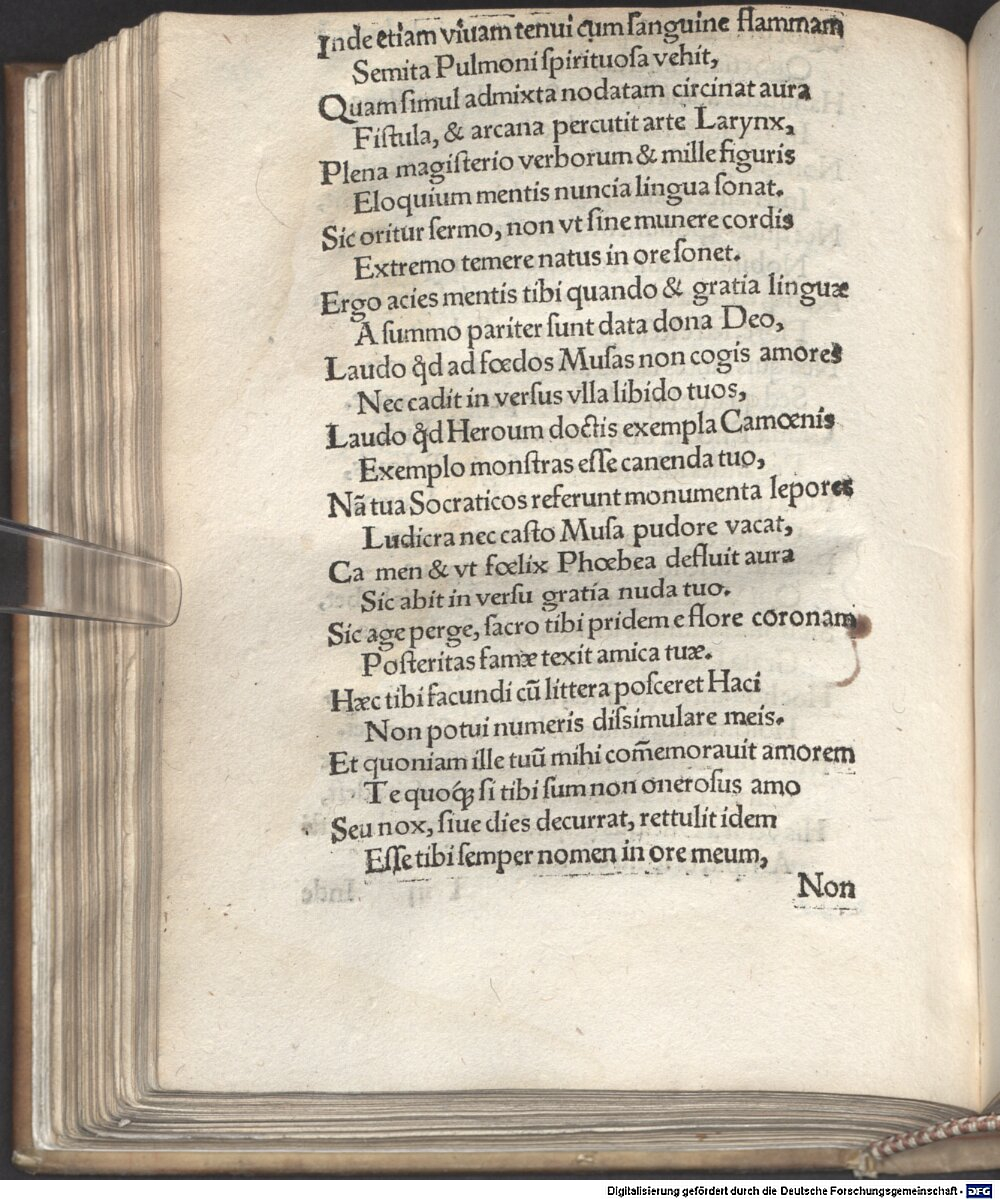 Inde etiam viuam tenui cum ſanguine flammam
Semita Pulmoni ſpirituoſa vehit,
Quam ſimul admixta nodatam circinat aura
Fiſtula, & arcana percutit arte Larynx,
Plena magiſterio verborum & mille figuris
Eloquium mentis nuncia lingua ſonat.
Sic oritur ſermo, non vt ſine munere cordis
Extremo temere natus in ore ſonet.
Ergo acies mentis tibi quando & gratia linguæ
A ſummo pariter ſunt data dona Deo,
Laudo qd̛ ad fœdos Muſas non cogis amores
Nec cadit in verſus vlla libido tuos,
Laudo qd̛ Heroum doctis exempla Camœnis
Exemplo monſtras eſſe canenda tuo,
Nã tua Socraticos referunt monumenta lepores
Ludicra nec caſto Muſa pudore vacat,
Ca men & vt fœlix Phœbea defluit aura
Sic abit in verſu gratia nuda tuo.
Sic age perge, ſacro tibi pridem e flore coronam
Poſteritas famæ texit amica tuæ.
Hæc tibi facundi cũ littera poſceret Haci
Non potui numeris diſsimulare meis.
Et quoniam ille tuũ mihi com̃emorauit amorem
Te quoqꝫ ſi tibi ſum non oneroſus amo
Seu nox, ſiue dies decurrat, rettulit idem
Eſſe tibi ſemper nomen in ore meum,
Non
Digitalisierung gefördert durch die Deutsche Forschungsgemeinschaft - DFG